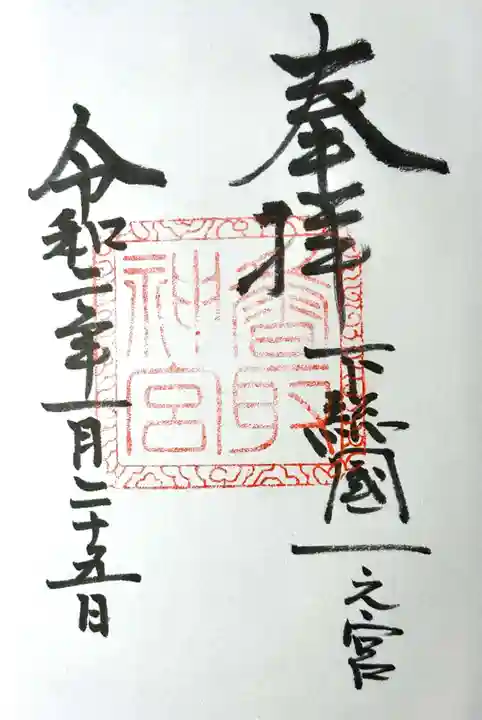 奉拝
下総國一之宮
香取神宮
令和二年一月二十五日